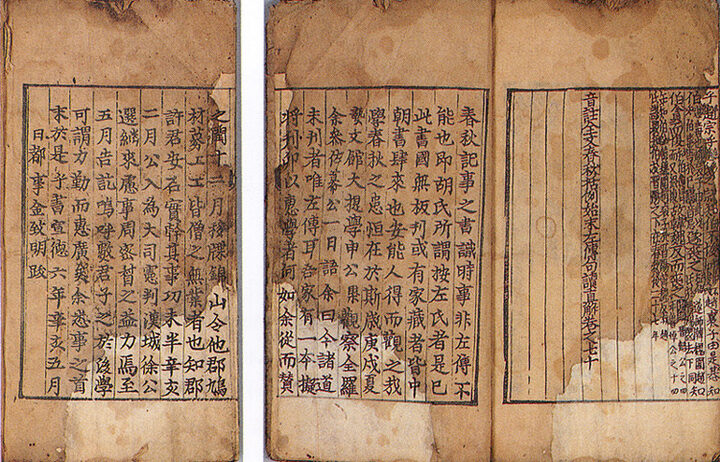 音註全文春秋括例始末左傳句讀直解卷之七十
春秋記事之書識時事非左傳不
能也即胡氏所謂按左氏者是已
此書國無板刊或有家藏者皆中
朝書肆來也安能人得而觀之我
學春秋之患恒在於斯歲庚戌夏
藝文館大提學申公槩觀察全羅
余叅佐幕公一日語余曰今諸道
未刊者唯左傳耳吾家有一本擬
將刊印以惠學者何如余從而贊
之閏十二月課錦山令他郡鳩
材募工工皆僧之無業者也知郡
許君安石實幹其事功未半辛亥
二月公入為大司憲判漢城徐公
選繼來慮事周密督之益力焉至
五月告訖嗚呼數君子之於後學
可謂力勤而惠廣矣余忝事之首
末於是乎書宣德六年辛亥五月
日都事金致明跋